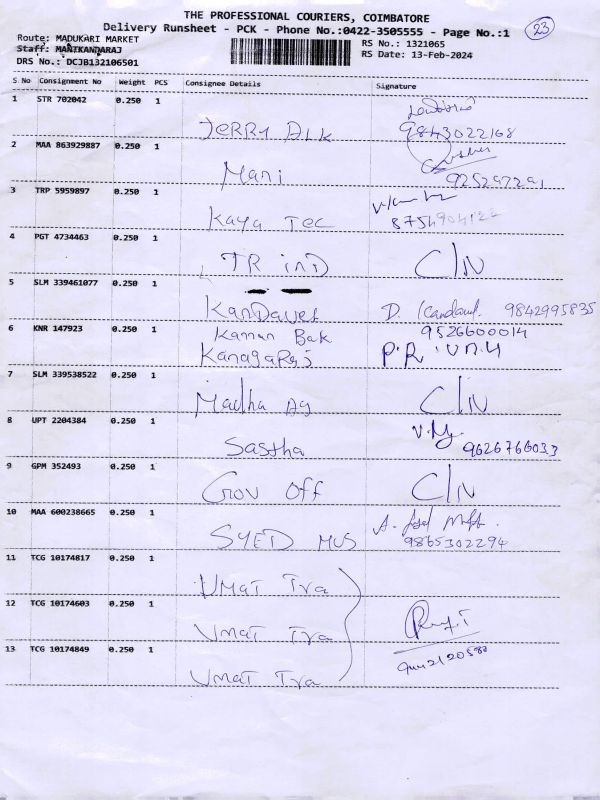 THE PROFESSIONAL COURIERS, COIMBATORE
Delivery Runsheet - PCK - Phone No.:0422-3505555 - Page No.:1
23
Route: MADUKARI MARKET
RS No.: 1321065
Staff: MANIKANDARAJ
RS Date: 13-Feb-2024
DRS No.: DCJB132106501
S No Consignment No Weight PCS Consignee Details Signature
1 STR 702042 0.250 1
JeRRy 9843022168
2 MAA 863929887 0.250 1
Mani 925297291
3 TRP 5959897 0.250 1
Kaya Tec 8754904122
4 PGT 4734463 0.250 1
TR inD C/N
5 SLM 339461077 0.250 1
KanDavel D. 9842995835
6 KNR 147923 0.250 1
Kannan Bak 9526600014
KanagaRaj P.R.UNNI
7 SLM 339538522 0.250 1
Madha Ag C/N
8 UPT 2204384 0.250 1
Sastha 9626766033
9 GPM 352493 0.250 1
Gov Off C/N
10 MAA 600238665 0.250 1
SYED MUS 9865302294
11 TCG 10174817 0.250 1
UMAT Tra
12 TCG 10174603 0.250 1
UMAT Tra
13 TCG 10174849 0.250 1
UMAT Tra